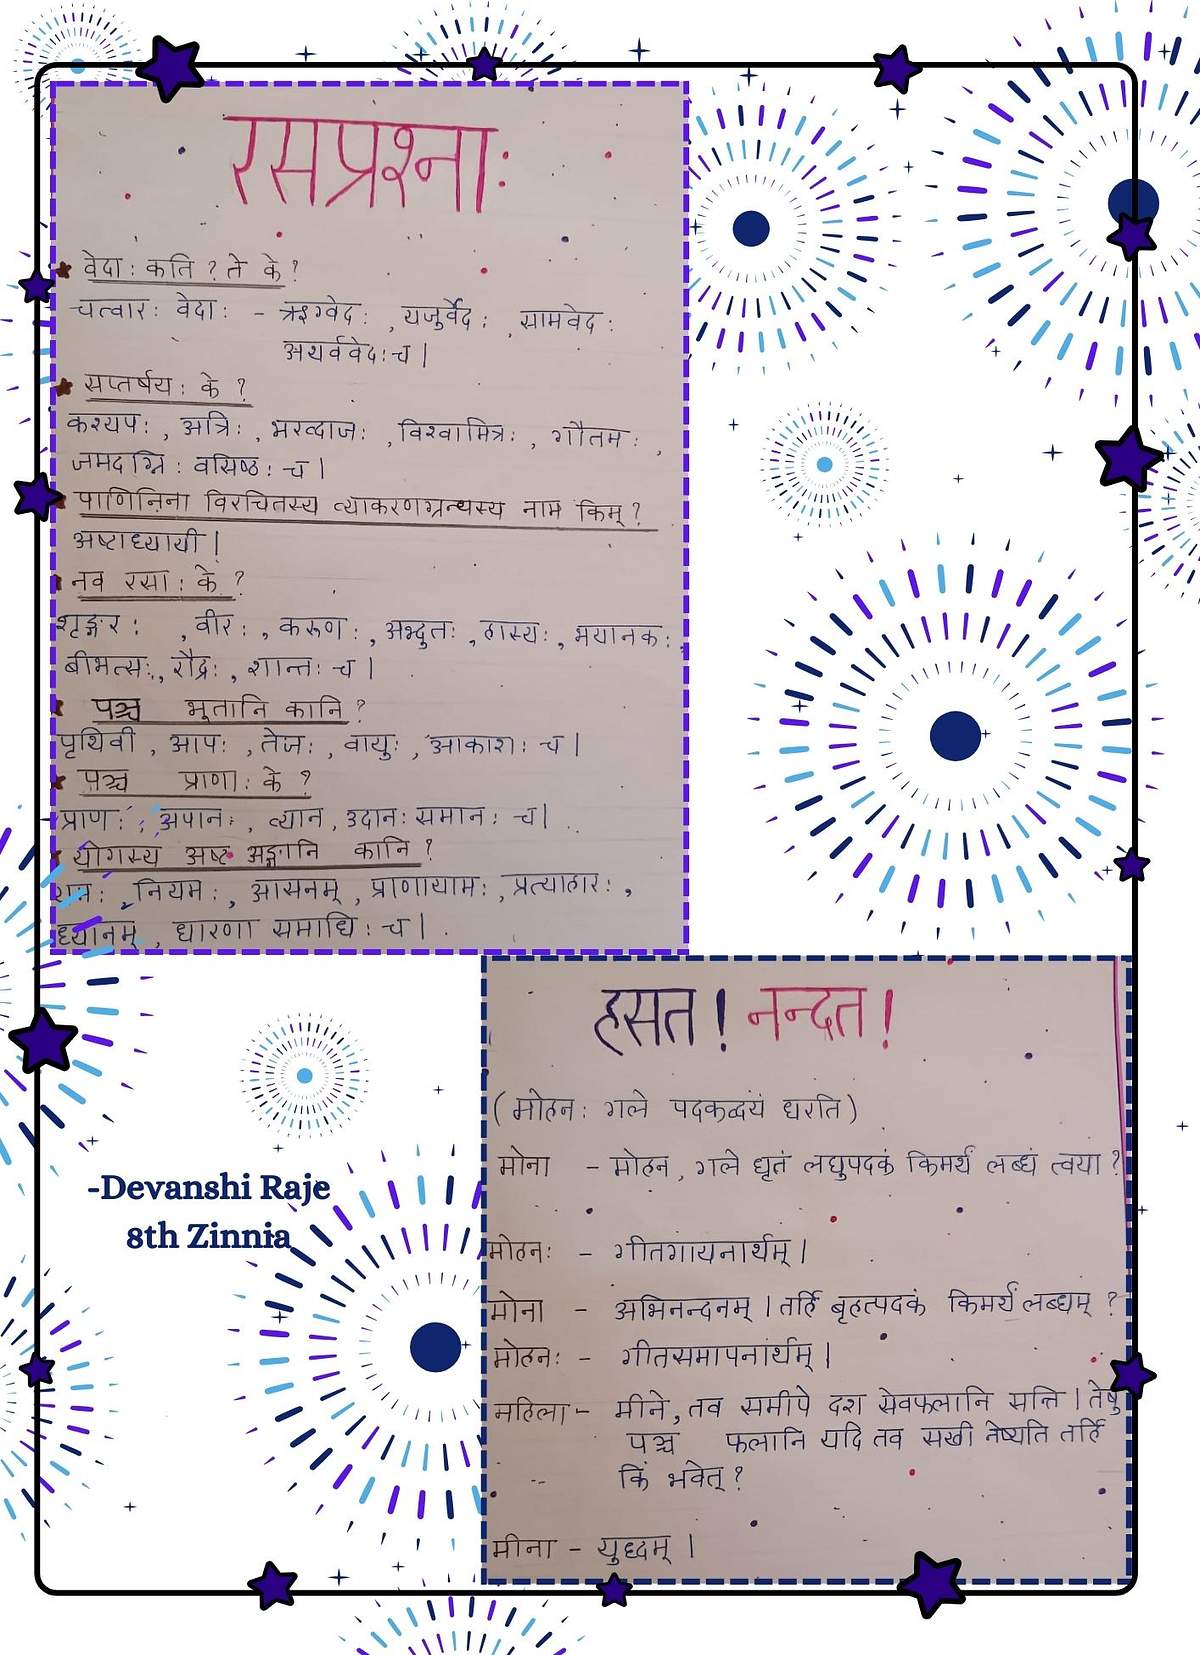 रसप्रश्नाः
वेदाः कति ? ते के ?
चत्वारः वेदाः - ऋग्वेदः , यजुर्वेदः , सामवेदः
अथर्ववेदः च |
सप्तर्षयः के ?
कश्यपः , अत्रिः , भरव्दाजः , विश्वामित्रः , गौतमः ,
जमदग्निः वसिष्ठः च |
पाणिनिना विरचितस्य व्याकरणग्रन्थस्य नाम किम् ?
अष्टाध्यायी |
नव रसाः के ?
शृङ्गरः , वीरः , करुणः , अद्भुतः , हास्यः , भयानकः ,
बीभत्सः , रौद्रः , शान्तः च |
पञ्च भूतानि कानि ?
पृथिवी , आपः , तेजः , वायुः , आकाशः च |
पञ्च प्राणाः के ?
प्राणः , अपानः , व्यान , उदानः समानः च |
योगस्य अष्ट अङ्गानि कानि ?
यमः , नियमः , आसनम् , प्राणायामः , प्रत्याहारः ,
ध्यानम् , धारणा समाधिः च |
हसत ! नन्दत !
( मोहनः गले पदकद्वयं धरति )
मोना - मोहन , गले धृतं लघुपदकं किमर्थं लब्धं त्वया ?
मोहनः - गीतगायनार्थम् |
मोना - अभिनन्दनम् | तर्हि बृहत्पदकं किमर्थं लब्धम् ?
मोहनः - गीतसमापनार्थम् |
महिला - मीने , तव समीपे दश सेवफलानि सन्ति | तेषु
पञ्च फलानि यदि तव सखी नेष्यति तर्हि
किं भवेत् ?
मीना - युध्दम् |
-Devanshi Raje
8th Zinnia